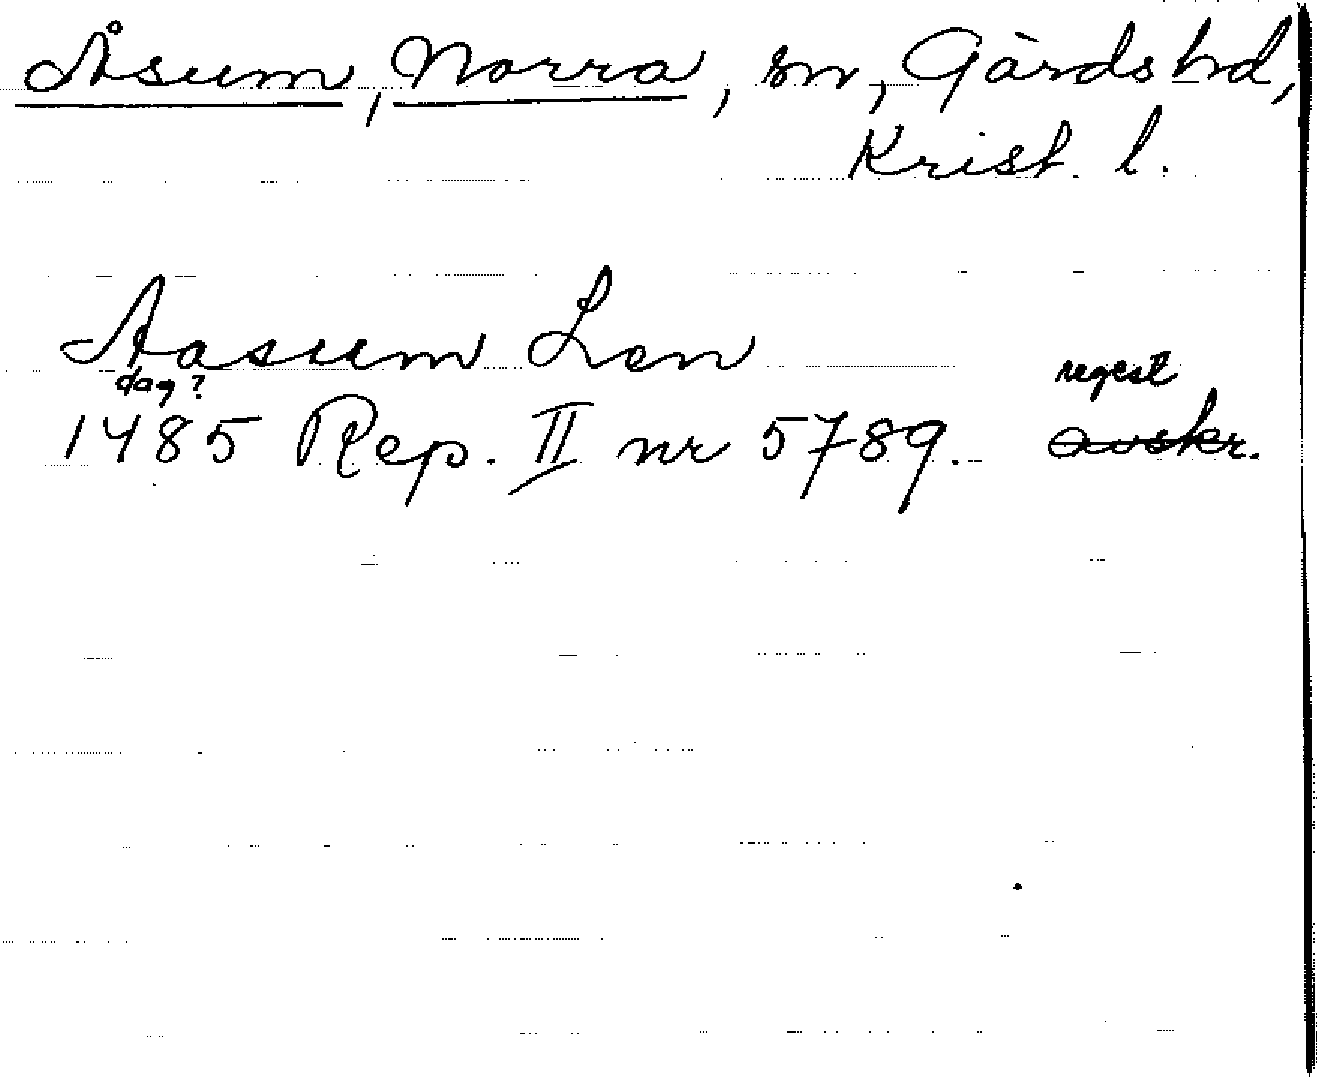 Åsum, Norra, sn, Gärds hd,
Krist. l.
Aasum Len
dag?
regest
1485 Rep. II nr 5789. avskr.